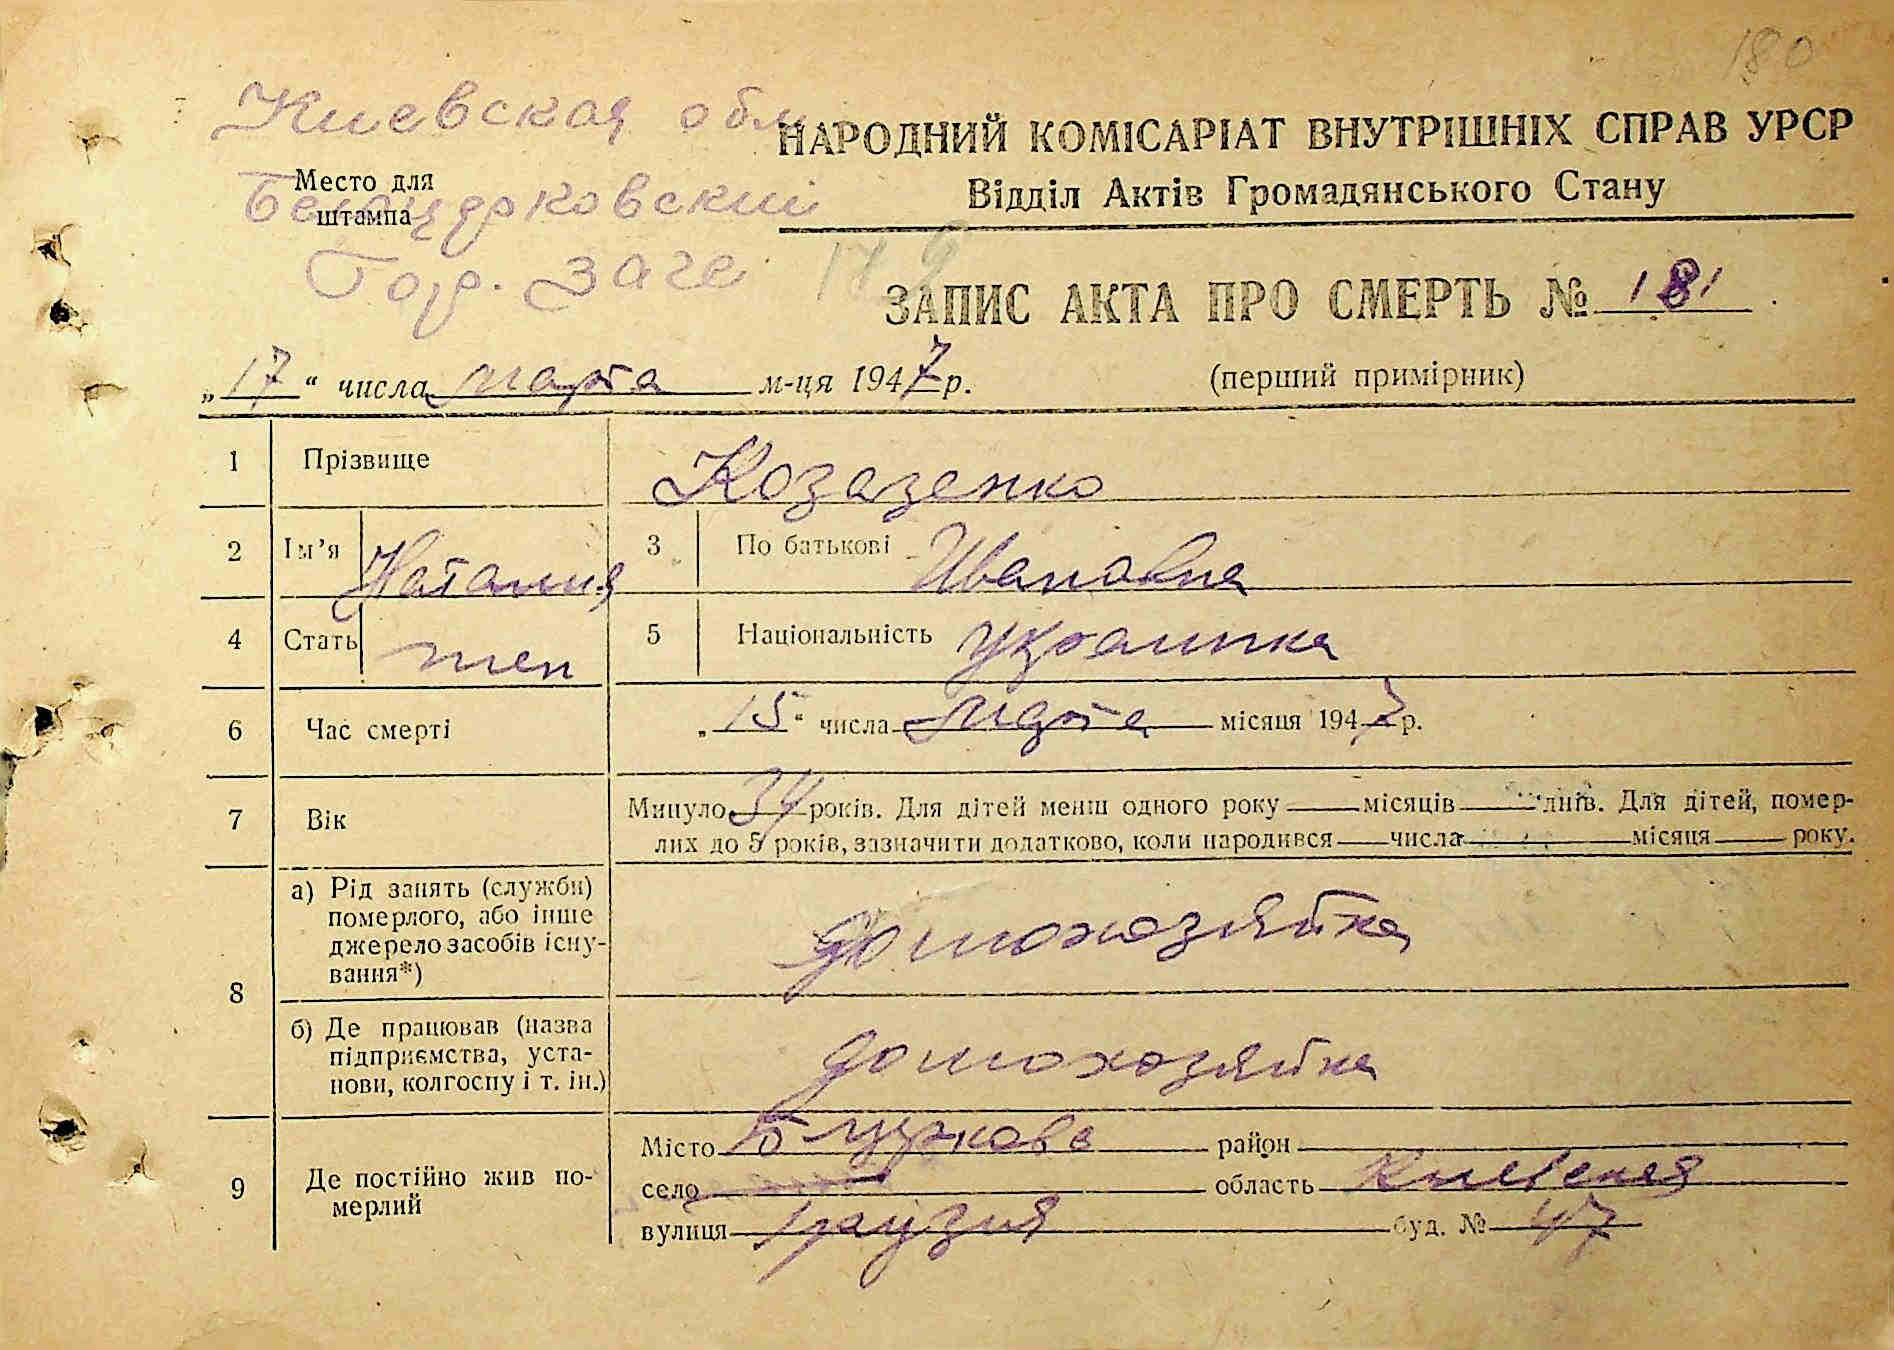 180
Киевская обл
НАРОДНИЙ КОМІСАРІАТ ВНУТРІШНІХ СПРАВ УРСР
Место для штампа
Белоцерковский
Відділ Актів Громадянського Стану
Гор. Загс 179
ЗАПИС АКТА ПРО СМЕРТЬ № 181
„17“ числа марта м-ця 1947 р. (перший примірник)
1 Прізвище Козаченко
2 Ім'я Наталия 3 По батькові Ивановна
4 Стать жен 5 Національність украинка
6 Час смерті „15“ числа марта місяця 1947 р.
7 Вік Минуло 34 років. Для дітей менш одного року — місяців — днів. Для дітей, помер-
лих до 5 років, зазначити додатково, коли народився — числа — місяця — року.
8 а) Рід занять (служби) померлого, або інше джерело засобів існу-вання*) домохозяйка
б) Де працював (назва підприємства, уста-нови, колгоспу і т. ін.) домохозяйка
9 Де постійно жив по-мерлий
Місто Б церковь район
село область Киевская
вулиця буд. № 47